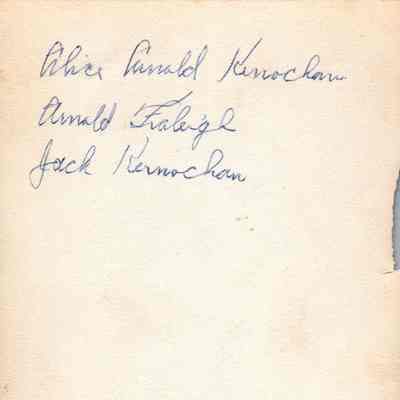 Alice Arnold Kernochan
Arnold Fraleigh
Jack Kernochan